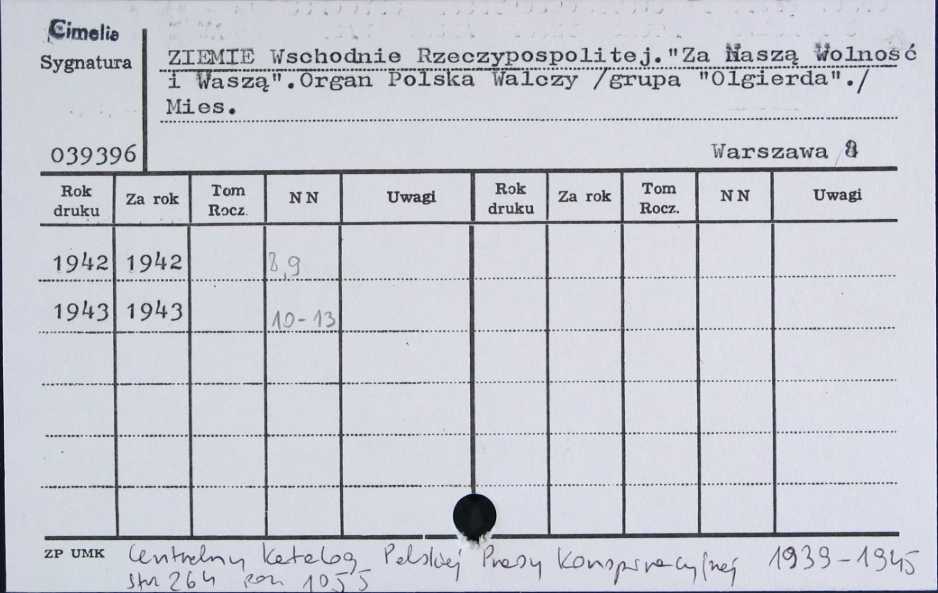 Cimelia
Sygnatura
ZIEMIE Wschodnie Rzeczypospolitej."Za Naszą Wolność
i Waszą".Organ Polska Walczy /grupa "Olgierda"./
Mies.
039396
Warszawa 8
Rok druku Za rok Tom Rocz. NN Uwagi Rok druku Za rok Tom Rocz. NN Uwagi
1942 1942 8,9
1943 1943 10-13
ZP UMK Centralny Katalog Polskiej Prasy Konspiracyjnej 1939-1945
str 264 poz 1055